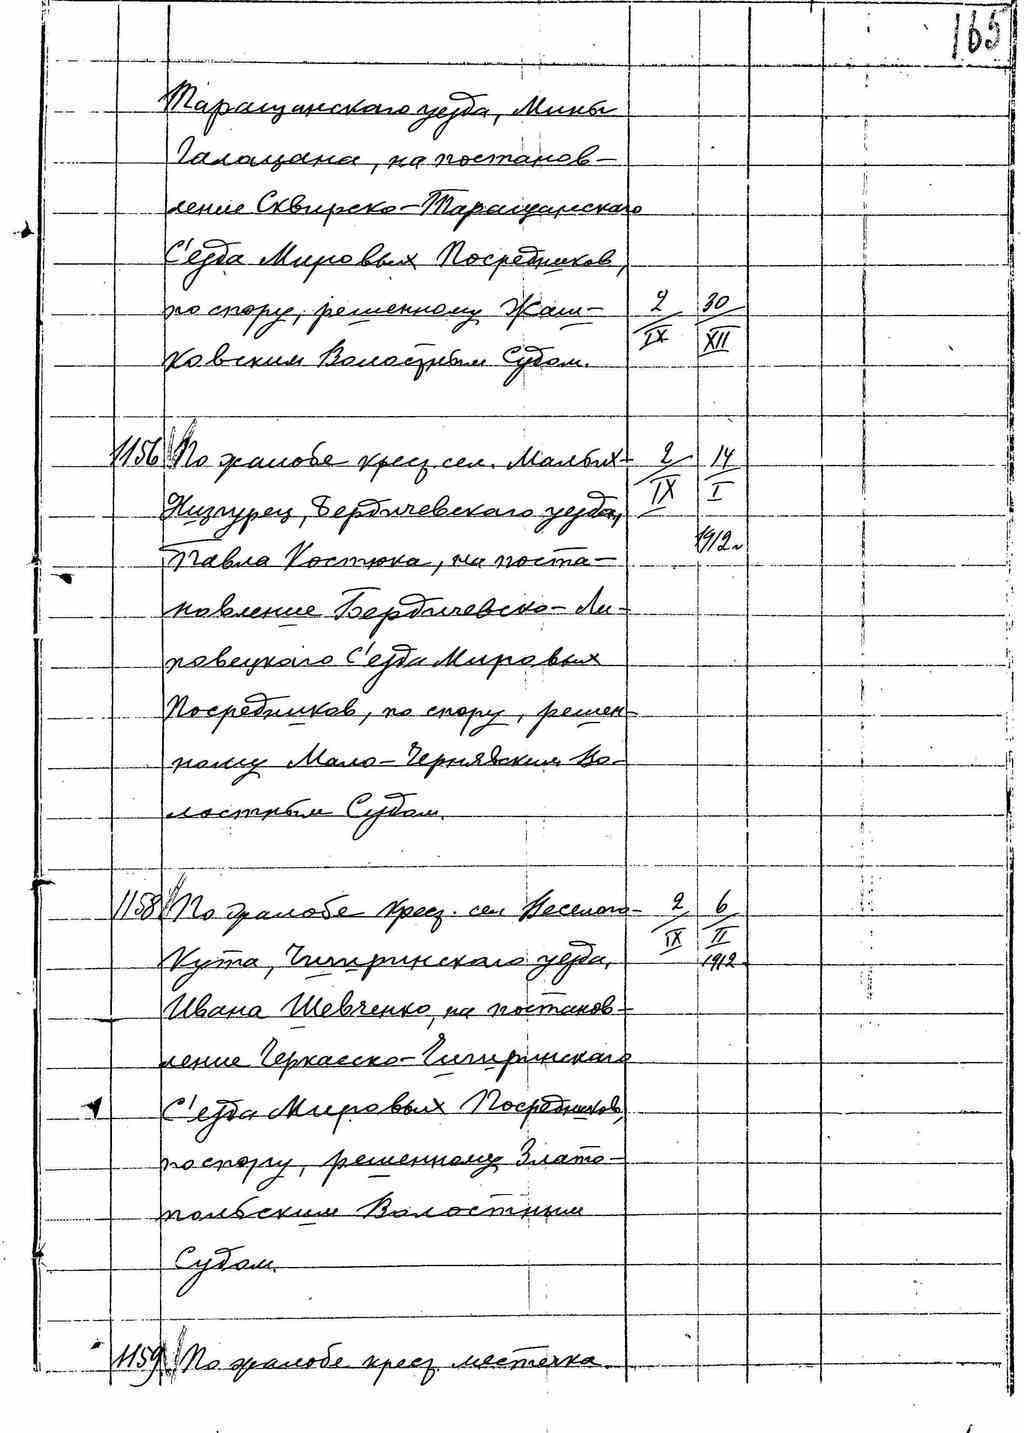 165
Таращанскаго уезда, Мины
Галащана, на постанов-
ление Сквирско-Таращанскаго
С'езда Мировых Посредников,
по спору, решенному Жаш- 2/IX 30/XII
ковским Волостным Судом.
1156 По жалобе крест. сел. Малых- 2/IX 14/I
Низгурец, Бердичевскаго уезда, 1912 г
Павла Костюка, на поста-
новление Бердичевско-Ли-
повецкаго С'езда Мировых
Посредников, по спору, решен-
ному Мало-Чернявским Во-
лостным Судом.
1158 По жалобе крест. сел Веселаго- 2/IX 6/II
Кута, Чигиринскаго уезда, 1912
Ивана Шевченко, на постанов-
ление Черкасско-Чигиринскаго
С'езда Мировых Посредников,
по спору, решенному Злато-
польским Волостным
Судом.
1159 По жалобе крест. местечка